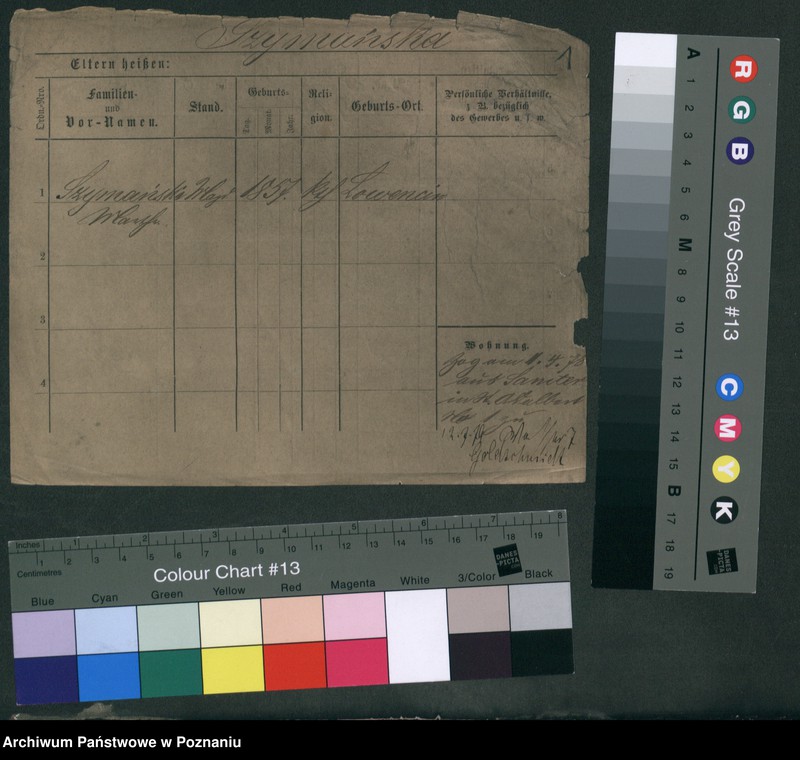 Szymańska
1
Eltern heißen:
Ordn.-Nro.
Familien-
und
Vor-Namen.
Stand.
Geburts-
Tag.
Monat
Jahr.
Reli-
gion.
Geburts-Ort.
Persönliche Verhältnisse,
z. B. bezüglich
des Gewerbes u. s. w.
1
Szymańska Magd 1857. kf Lowencin
2
3
4
Wohnung.
Zog am 4. 78
aus
in St. Adalbert
Goldschmidt
A 1 2 3 4 5 6 M 8 9 10 11 12 13 14 15 B 17 18 19
R G B
Grey Scale #13
C M Y K
DANES
PICTA
.COM
Inches 1 2 3 4 5 6 7 8
1 2 3 4 5 6 7 8 9 10 11 12 13 14 15 16 17 18 19
Centimetres
Colour Chart #13
DANES
PICTA
.COM
Blue Cyan Green Yellow Red Magenta White 3/Color Black
Archiwum Państwowe w Poznaniu